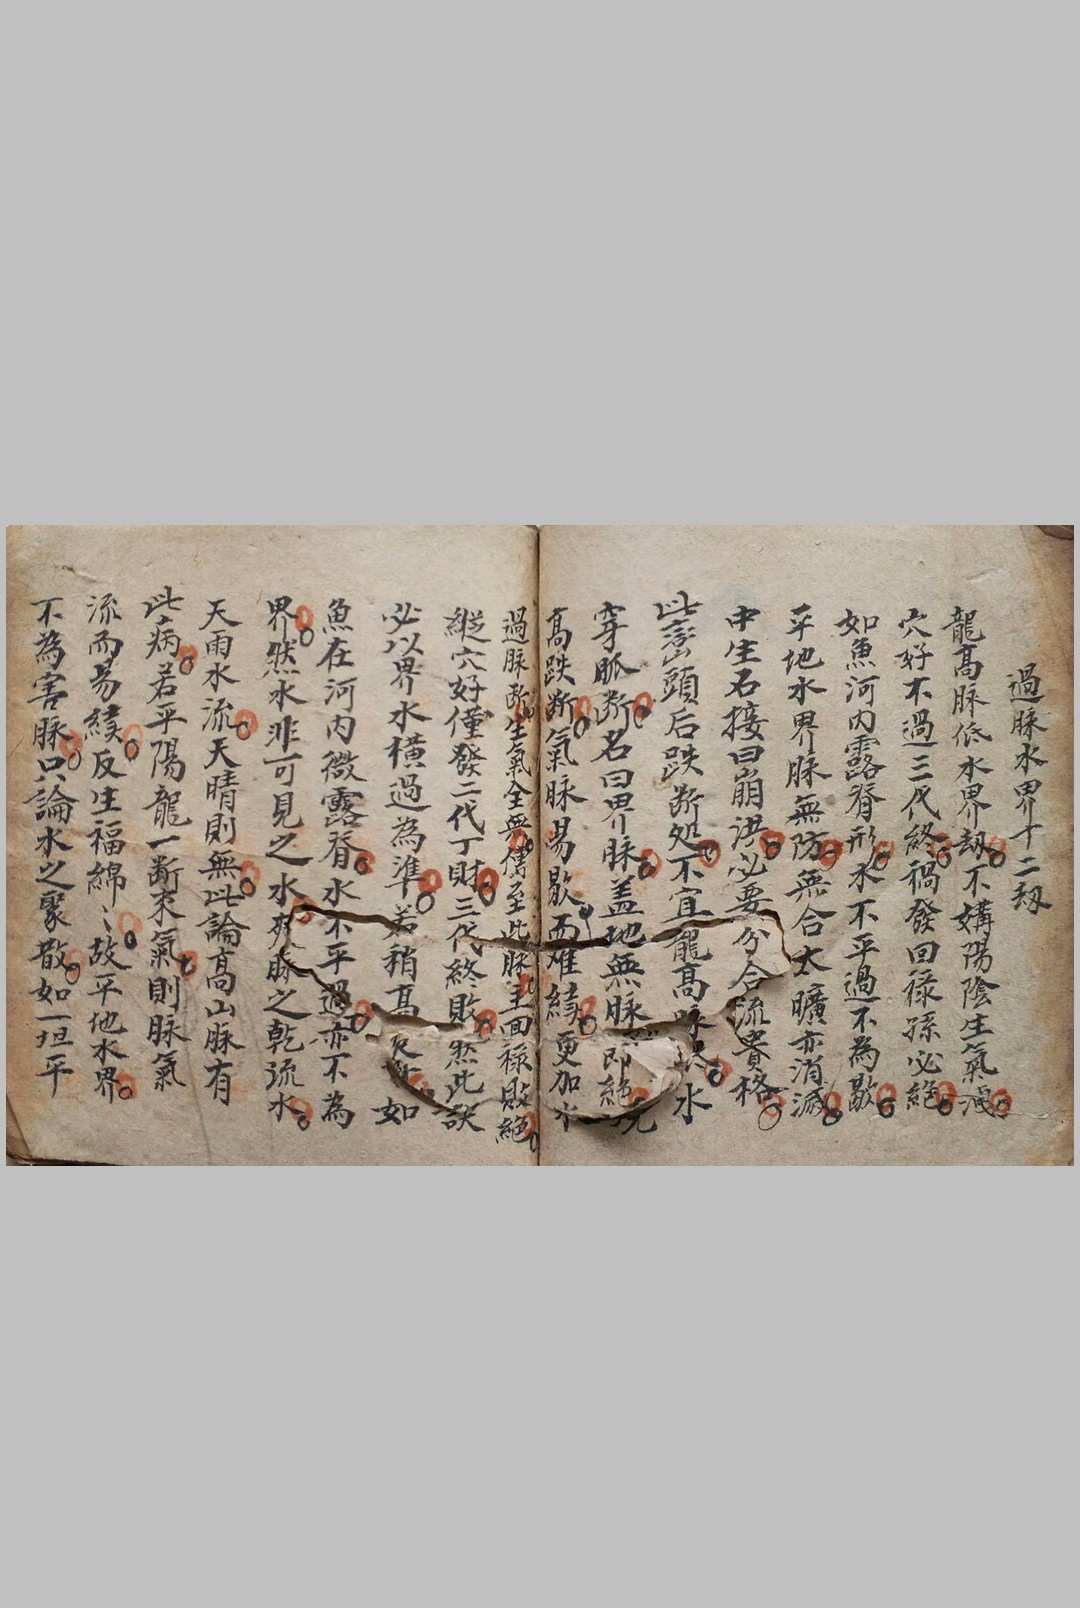 過脉水界十二刼
龍高脉低水界刼不媾陽陰生氣滅
穴好不過三代終禍發回祿孫必絕
如魚河內露脊形水不平過不為歇
平地水界脉無防無合太曠亦消滅
中生石接曰崩洪必要分合流貴格
此巒頭后跌断処不宜龍高脉水
穿脈断名曰界脉蓋地無脉即絕
高跌断氣脉易歇而难續更加水
過脉断生氣全無傳至此脉主回祿敗絕
縱穴好僅發二代丁財三代終敗然此訣
必以界水橫過為準若稍高如
魚在河内微露脊水不平過亦不為
界然水非可見之水死脉之乾流水
天雨水流天晴則無此論高山脉有
此病若平陽龍一断來氣則脉氣
流而易續反生福綿〻故平地水界
不為害脉只論水之聚散如一坦平